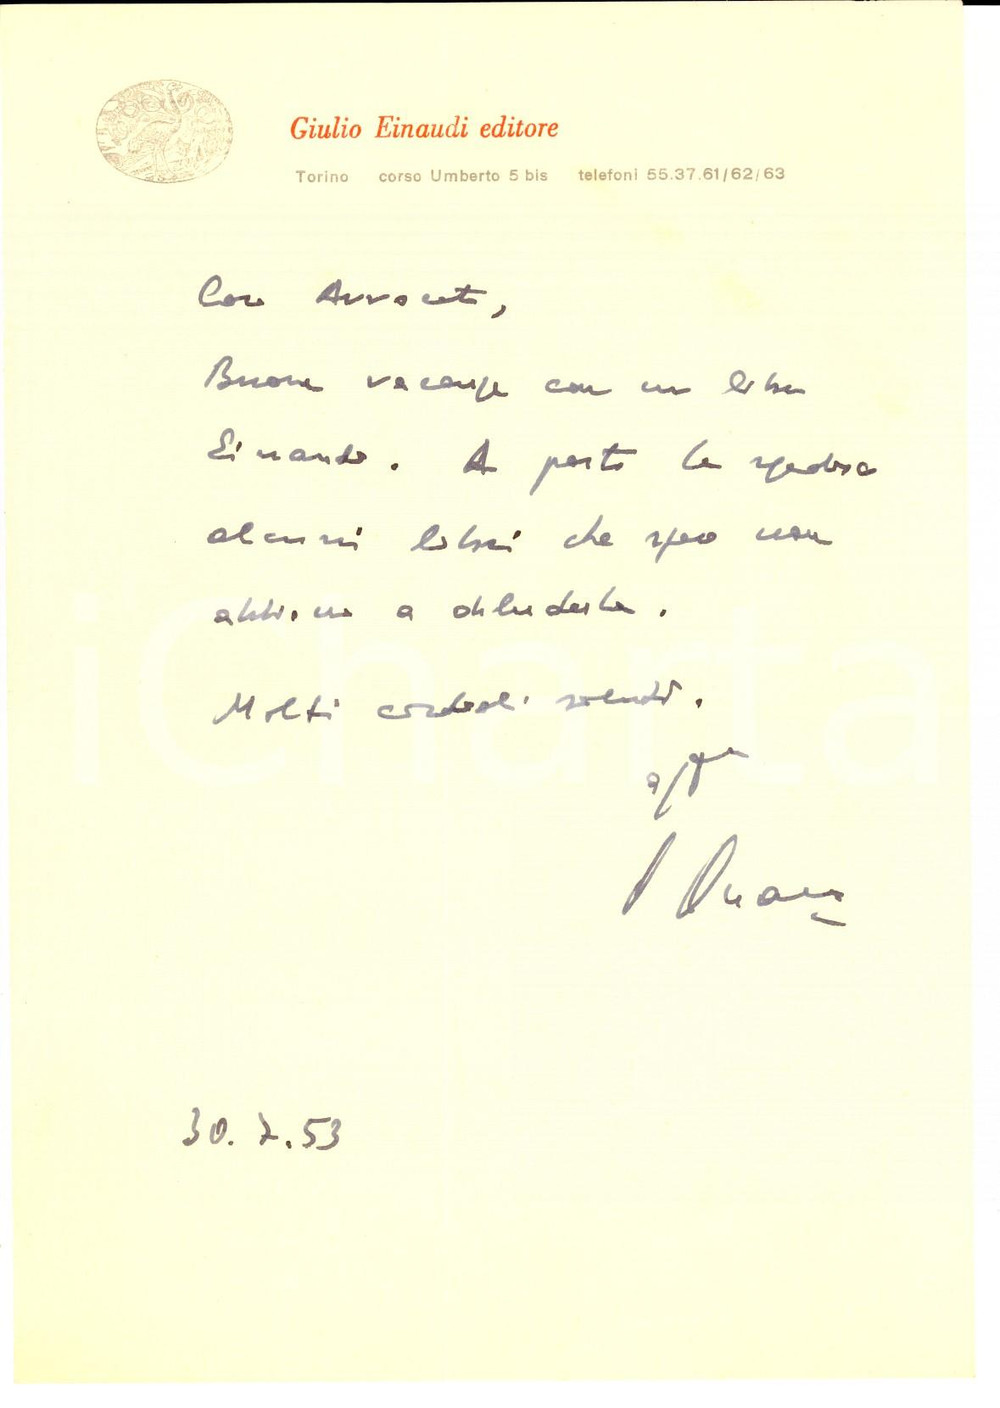 Giulio Einaudi editore
Torino corso Umberto 5 bis telefoni 55.37.61/62/63
Caro Avvocato,
Buone vacanze con un libro
Einaudi. A parte le spedisco
alcuni libri che spero non
abbiano a deluderla.
Molti cordiali saluti.
aff.mo
30.7.53
iCharta